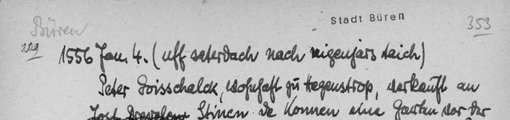 Stadt Büren
353
Büren
1556 Jan. 4. (uff saterdach nach nigenjars taich)
Peter Voisschalck, wohnhaft zu Hegenstrop, verkauft an
Jost Stinen de Konnen eine Garten vor der